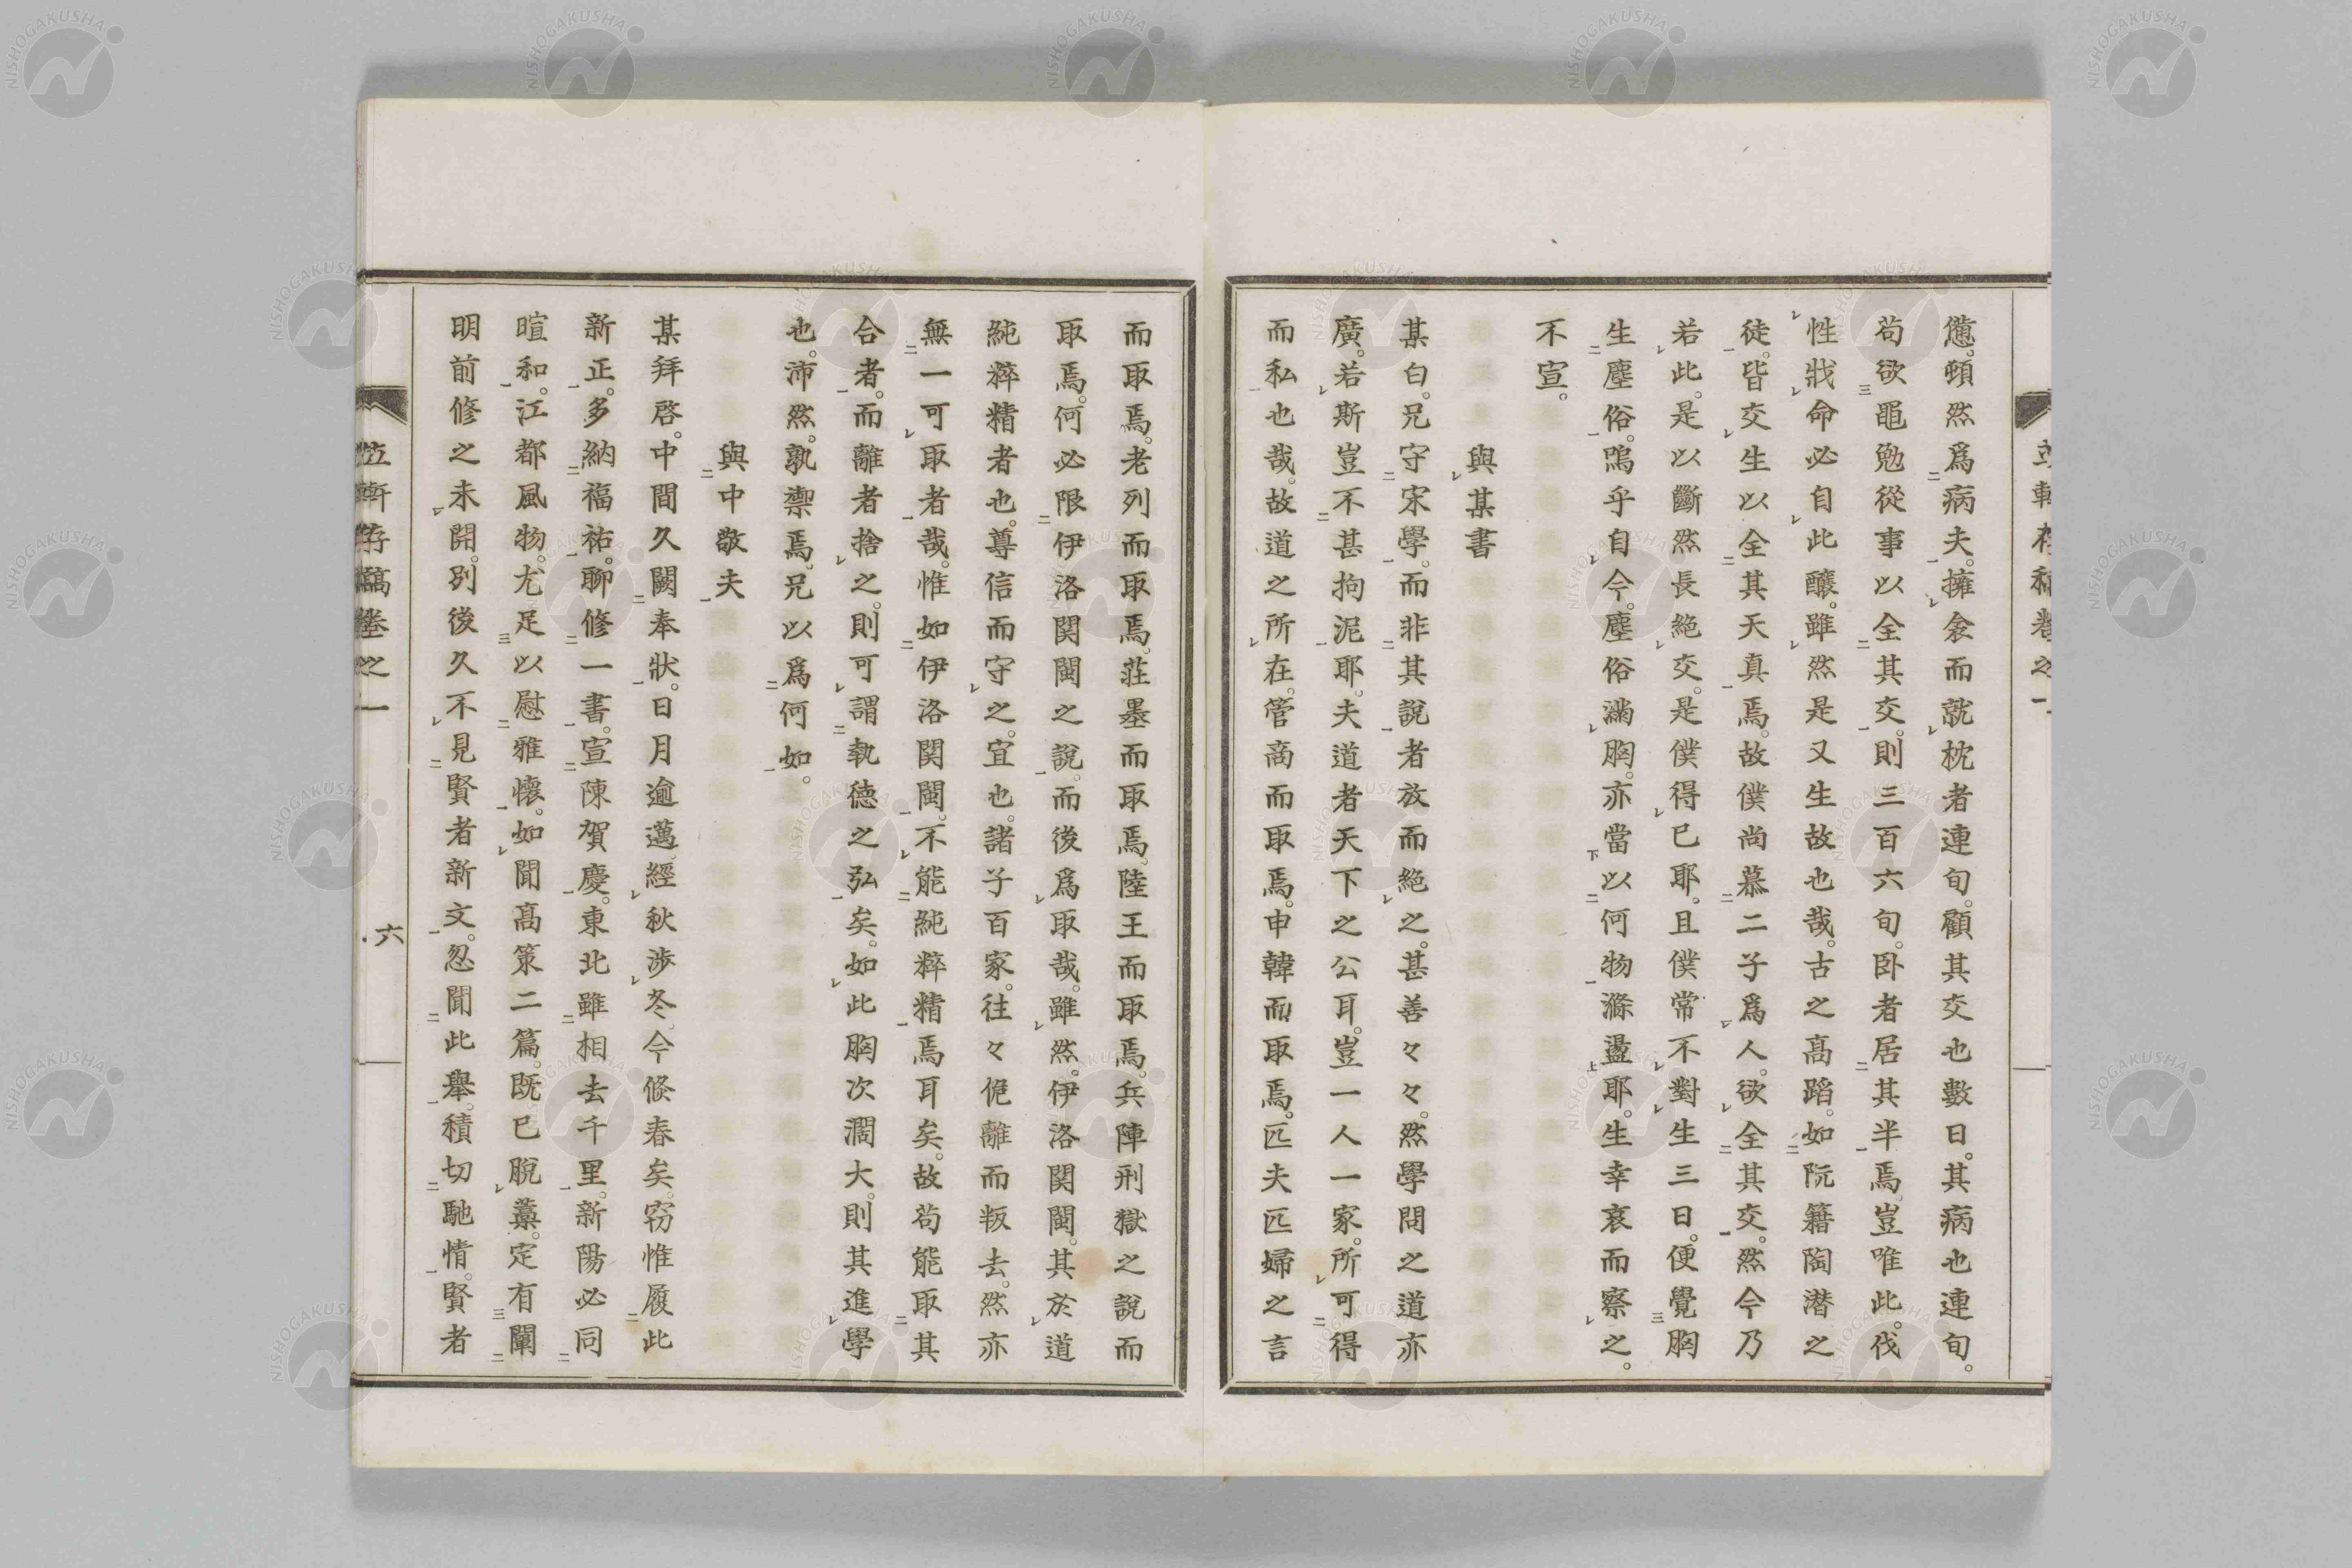 憊。頓然爲病夫。擁衾而就枕者連旬。顧其交也數日。其病也連旬。
苟欲黽勉從事以全其交。則三百六旬。臥者居其半焉。豈唯此。伐
性戕命必自此釀。雖然是又生故也哉。古之高蹈。如阮籍陶潛之
徒。皆交生以全其天真焉。故僕尚慕二子爲人。欲全其交。然今乃
若此。是以斷然長絶交。是僕得已耶。且僕常不對生三日。便覺胸
生塵俗。嗚乎自今。塵俗滿胸。亦當以何物滌盪耶。生幸哀而察之。
不宣。
與某書
某白。兄守宋學。而非其說者放而絶之。甚善々々。然學問之道亦
廣。若斯豈不甚拘泥耶。夫道者天下之公耳。豈一人一家。所可得
而私也哉。故道之所在。管商而取焉。申韓而取焉。匹夫匹婦之言
而取焉。老列而取焉。莊墨而取焉。陸王而取焉。兵陣刑獄之說而
取焉。何必限伊洛関閩之說。而後爲取哉。雖然。伊洛関閩。其於道
純粹精者也。尊信而守之。宜也。諸子百家。往々佹離而叛去。然亦
無一可取者哉。惟如伊洛関閩。不能純粹精焉耳矣。故苟能取其
合者。而離者捨之。則可謂執德之弘矣。如此胸次濶大。則其進學
也。沛然。孰禦焉。兄以爲何如。
與中敬夫
某拜啓。中間久闕奉狀。日月逾邁。經秋渉冬。今倏春矣。窃惟履此
新正。多納福祐。聊修一書。宣陳賀慶。東北雖相去千里。新陽必同
暄和。江都風物。尤足以慰雅懷。如聞髙策二篇。既已脫藁。定有闡
明前修之未開。列後久不見賢者新文。忽聞此舉。積切馳情。賢者
竝軒存稿卷之一
六